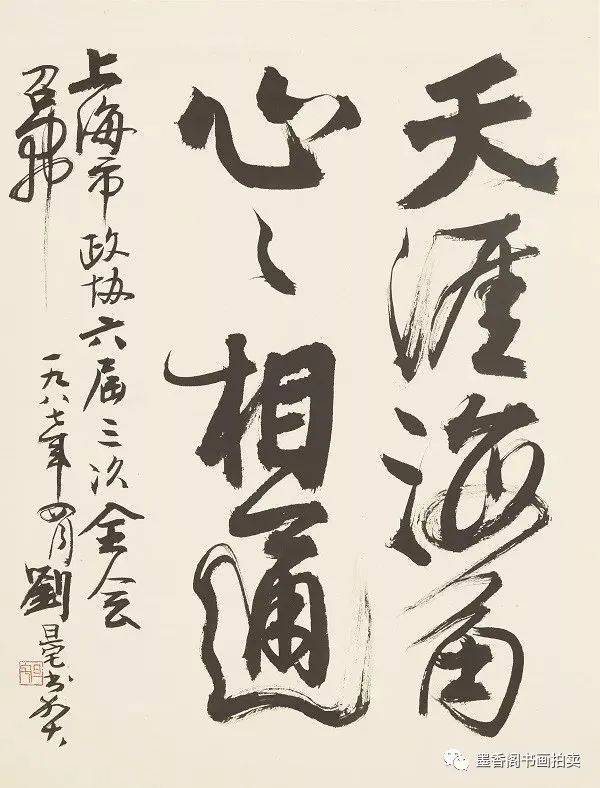 天涯海角
心〻相通
上海市政协六届三次全会
召
一九八七年四月劉旦宅书
墨香阁书画拍卖